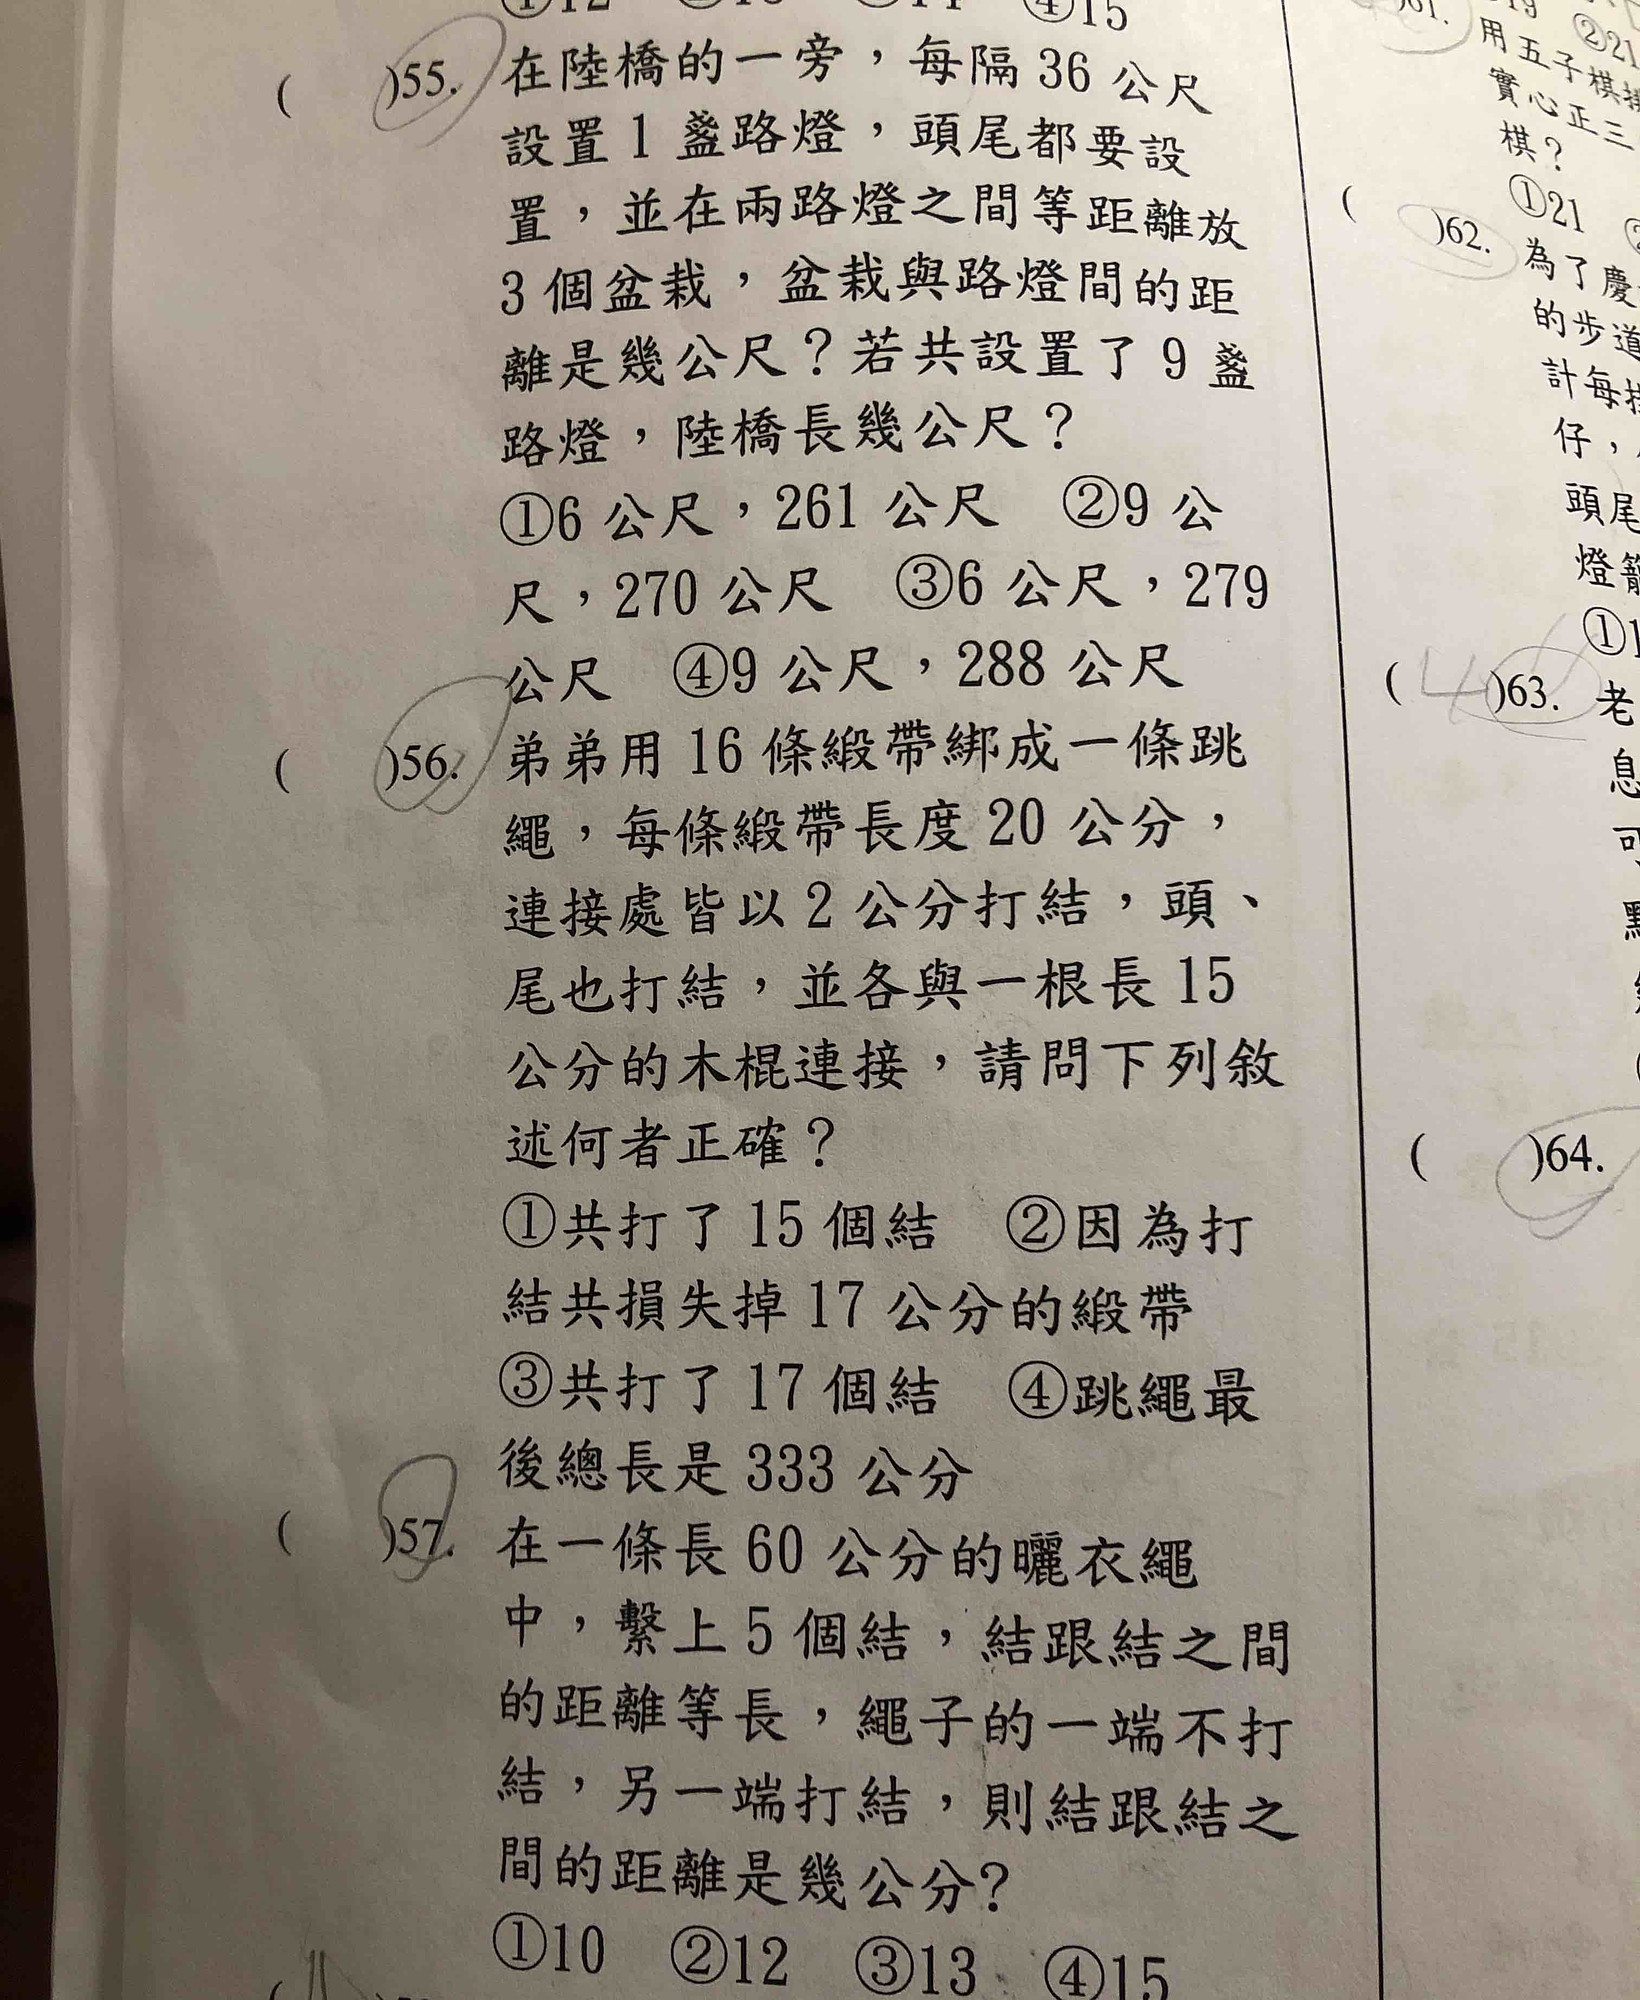 ①12 ②13 ③14 ④15
( )55. 在陸橋的一旁，每隔 36 公尺
設置 1 盞路燈，頭尾都要設
置，並在兩路燈之間等距離放
3 個盆栽，盆栽與路燈間的距
離是幾公尺？若共設置了 9 盞
路燈，陸橋長幾公尺？
①6 公尺，261 公尺 ②9 公
尺，270 公尺 ③6 公尺，279
公尺 ④9 公尺，288 公尺
( )56. 弟弟用 16 條緞帶綁成一條跳
繩，每條緞帶長度 20 公分，
連接處皆以 2 公分打結，頭、
尾也打結，並各與一根長 15
公分的木棍連接，請問下列敘
述何者正確？
①共打了 15 個結 ②因為打
結共損失掉 17 公分的緞帶
③共打了 17 個結 ④跳繩最
後總長是 333 公分
( )57. 在一條長 60 公分的曬衣繩
中，繫上 5 個結，結跟結之間
的距離等長，繩子的一端不打
結，另一端打結，則結跟結之
間的距離是幾公分?
①10 ②12 ③13 ④15
②21
)61. 用五子棋
實心正三
棋？
①21
( )62. 為了慶
的步道
計每
仔，
頭尾
燈籠
①1
( 4 )63. 老
息
可
( )64.